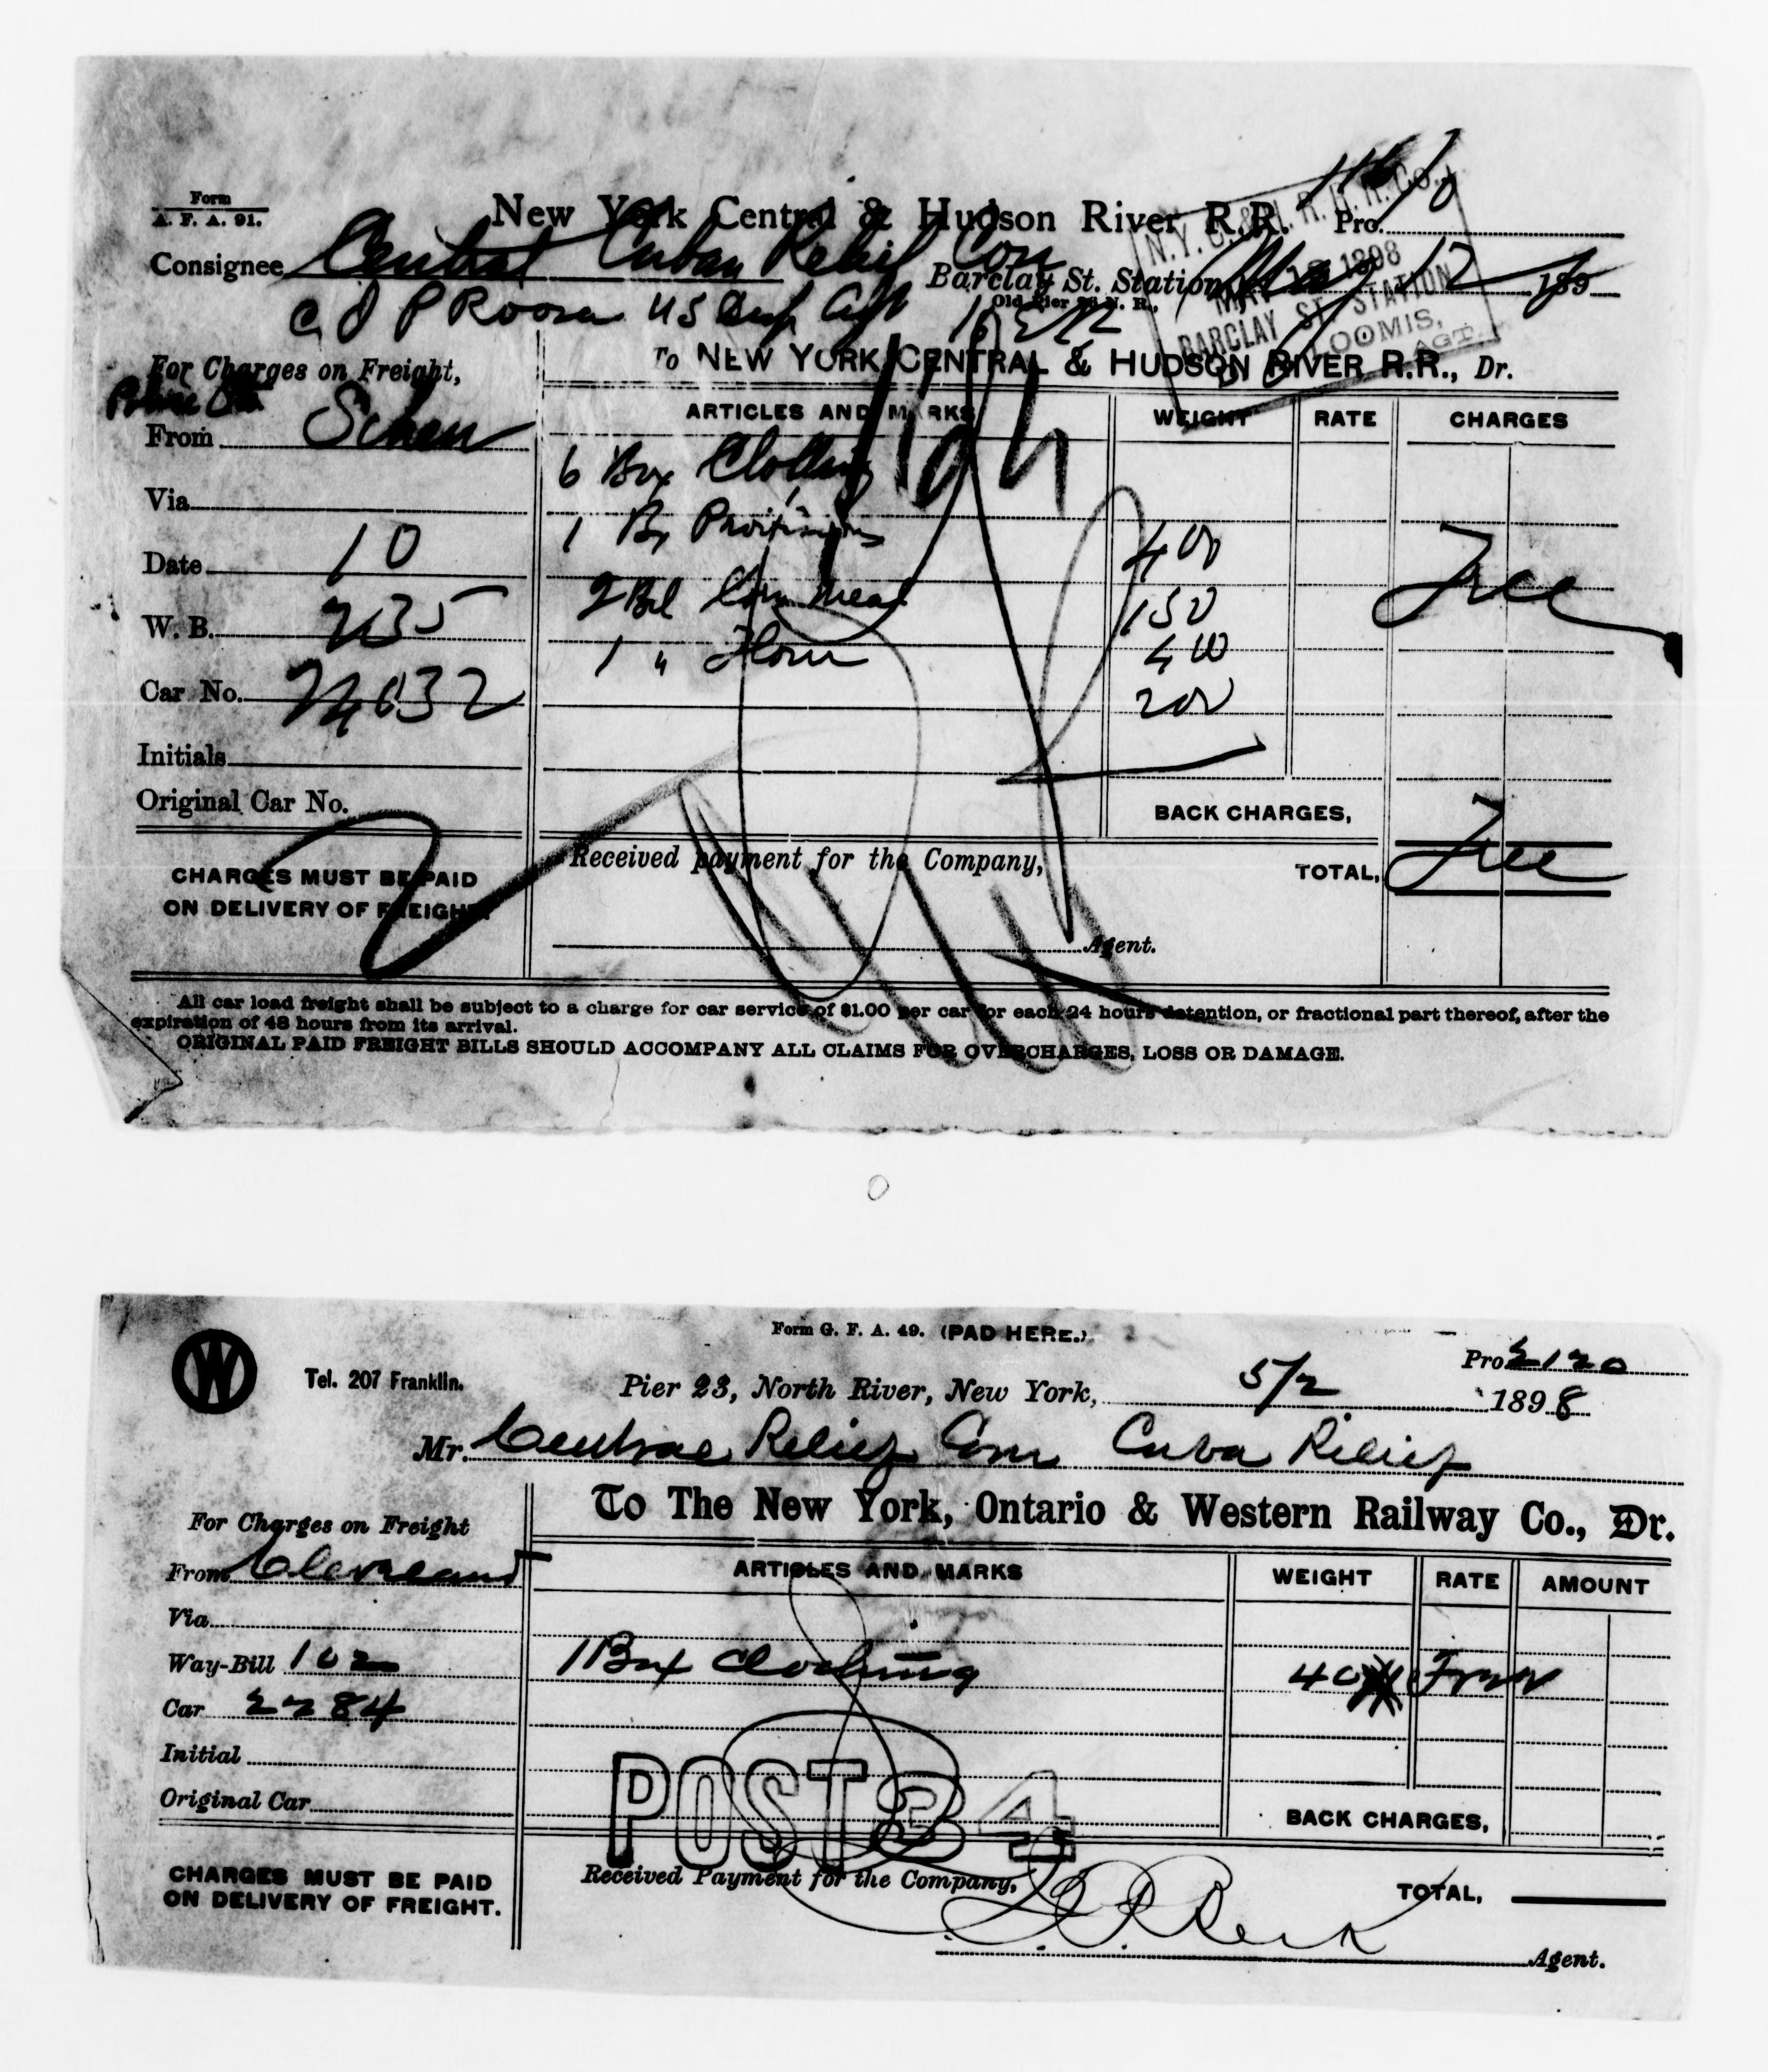 Form
A. F. A. 91.
New York Central & Hudson River R.R. Pro.
Consignee Central Cuban Relief Com Barclay St. Station, May 12 189
Old Pier N. R.
N.Y.C. & H. R. R. R. CO.,
MAY 1898
BARCLAY ST. STATION
LOOMIS,
AGT.
For Charges on Freight, To NEW YORK CENTRAL & HUDSON RIVER R.R., Dr.
ARTICLES AND MARKS WEIGHT RATE CHARGES
From
6 Box Clothing
Via
1 Bx Provisions 400
Date 10 Free
2 Bbl Corn Meal 150
W. B. 235
1 " Flour 400
Car No. 200
Initials
Original Car No. BACK CHARGES,
CHARGES MUST BE PAID
ON DELIVERY OF FREIGHT.
Received payment for the Company, TOTAL, Free
Agent.
All car load freight shall be subject to a charge for car service of $1.00 per car for each 24 hours detention, or fractional part thereof, after the
expiration of 48 hours from its arrival.
ORIGINAL PAID FREIGHT BILLS SHOULD ACCOMPANY ALL CLAIMS FOR OVERCHARGES, LOSS OR DAMAGE.
Form G. F. A. 49. (PAD HERE.)
W
Tel. 207 Franklin.
Pro 2120
Pier 23, North River, New York, 5/2 1898
Mr. Central Relief Com Cuba Relief
To The New York, Ontario & Western Railway Co., Dr.
For Charges on Freight
ARTICLES AND MARKS WEIGHT RATE AMOUNT
From Cleveland
Via
Way-Bill 102 1 Box Clothing 40 Free
Car 2284
Initial
POST 34
Original Car BACK CHARGES,
CHARGES MUST BE PAID
ON DELIVERY OF FREIGHT.
Received Payment for the Company, TOTAL,
Agent.